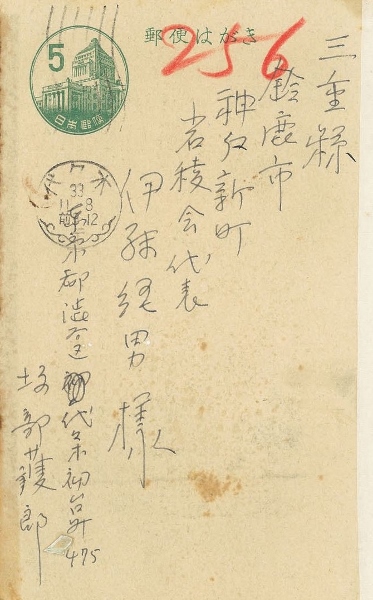 郵便はがき
5
日本郵便
256
三重縣
鈴鹿市
神戸新町
岩稜会代表
伊藤経男様
代々木
33
11.8
前 12
東京都渋谷区代々木初台町475
坂部護郎